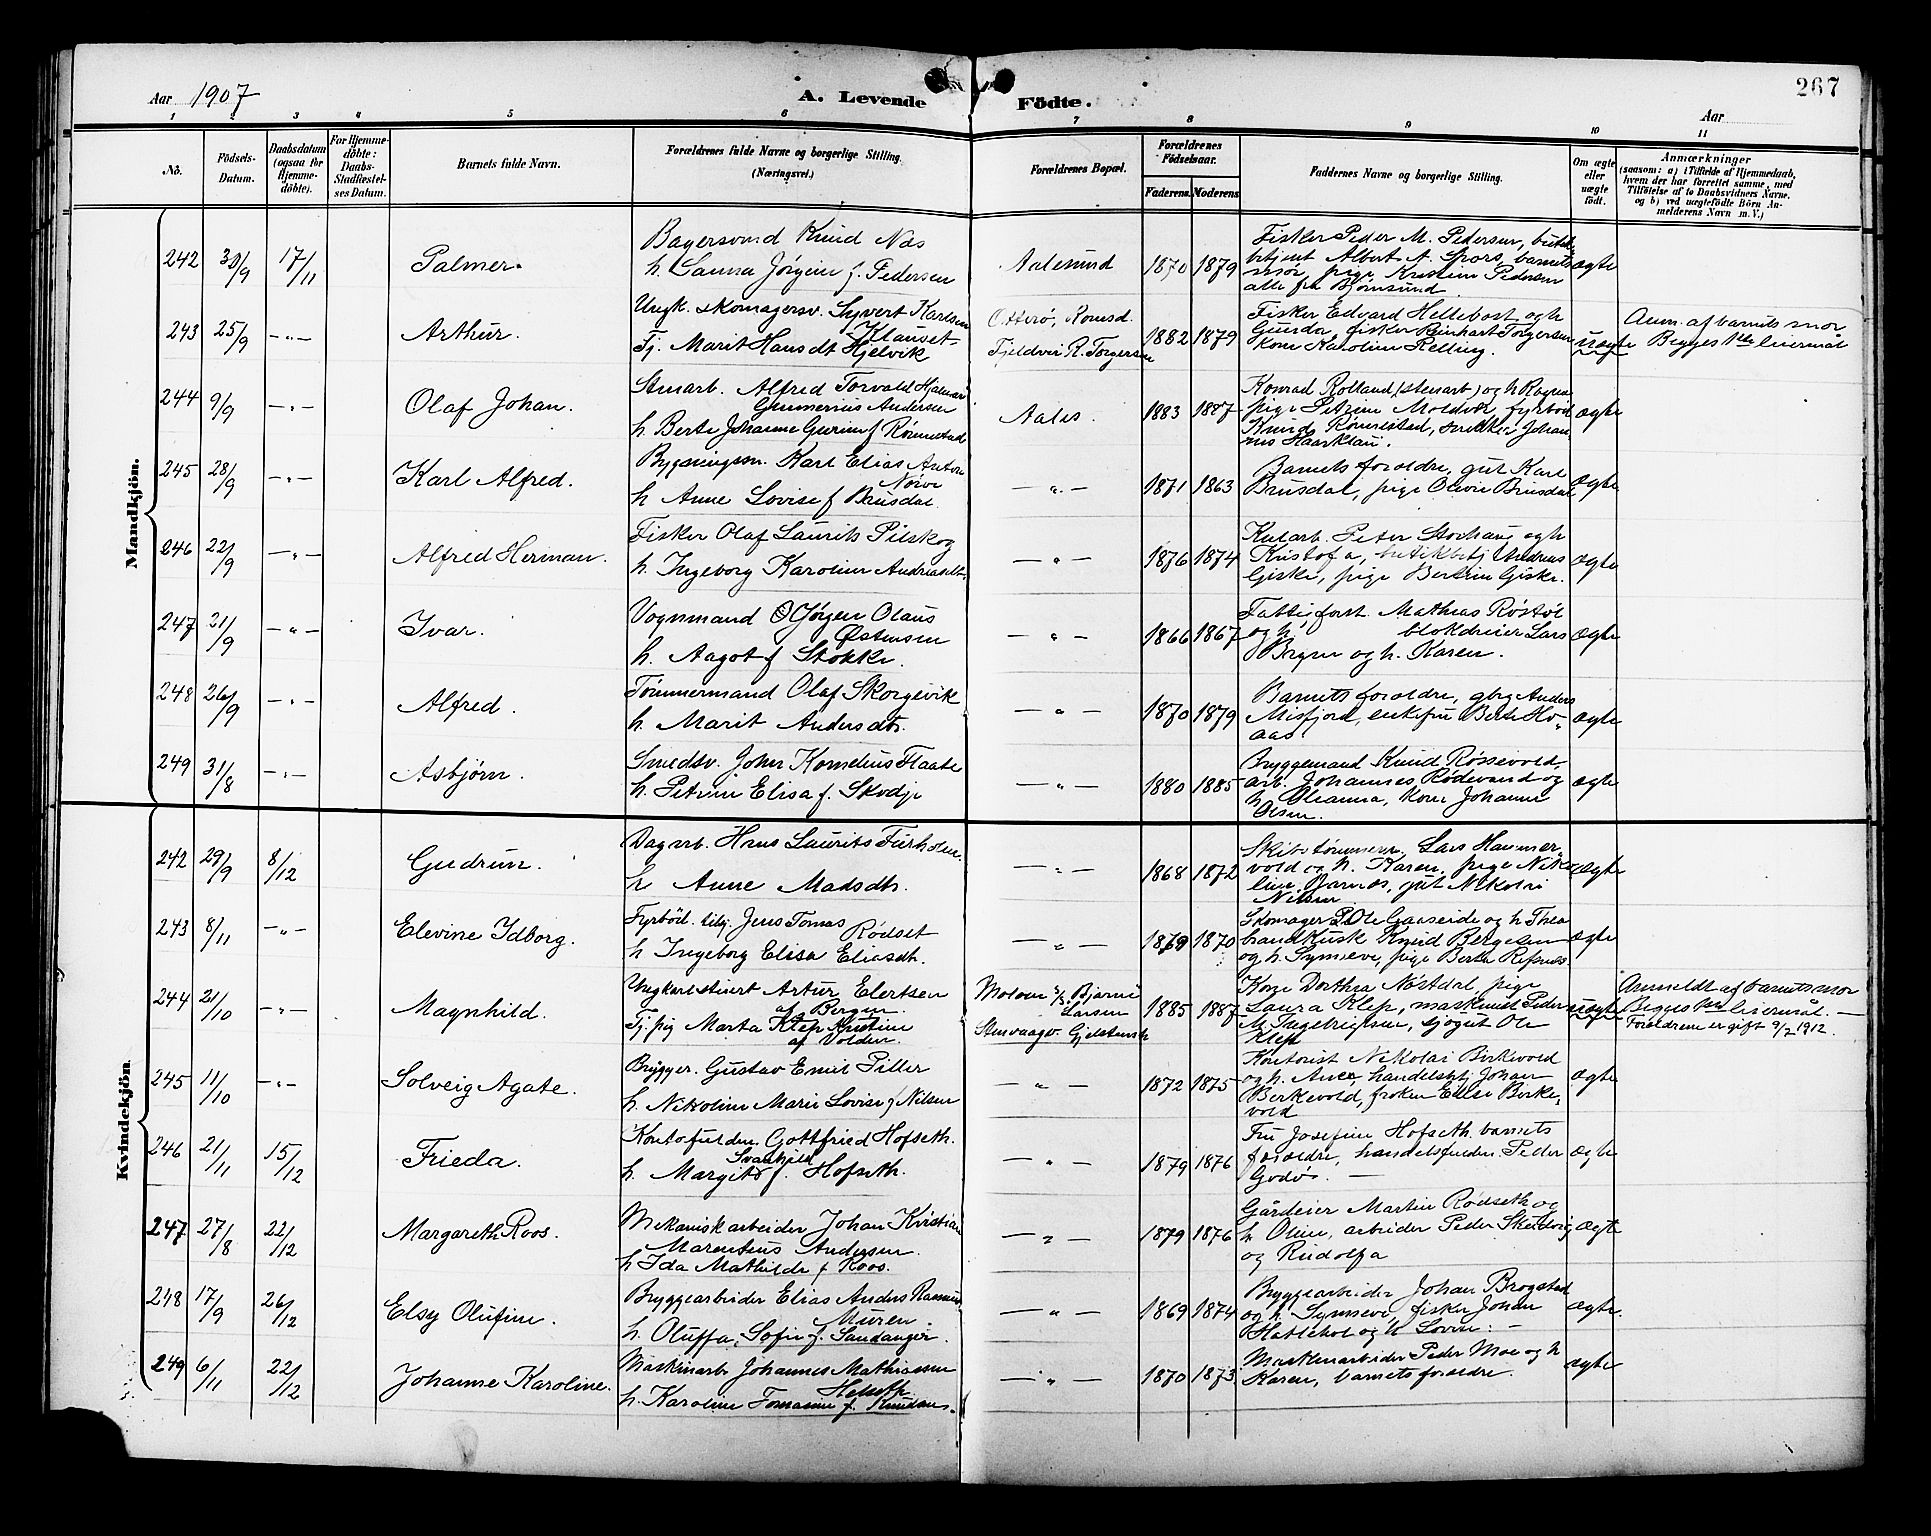 267
Aar 1907
A. Levende Födte.
Aar
1 2 3 4 5 6 7 8 9 10 11
No.
Födsels-Datum.
Daabsdatum (ogsaa for Hjemme-döbte).
For Hjemme-döbte: Daabs-Stadfæstel-ses Datum.
Barnets fulde Navn.
Forældrenes fulde Navne og borgerlige Stilling. (Næringsvei.)
Forældrenes Bopæl.
Forældrenes Födselsaar.
Faderens. Moderens.
Faddernes Navne og borgerlige Stilling.
Om ægte eller uægte födt.
Anmærkninger
(saasom: a) i Tilfælde af Hjemmedaab, hvem der har forrettet samme, med Tilföielse af to Daabsvidners Navne, og b) ved uægtefödte Börn An-melderens Navn m. V.)
Mandkjön.
242 30/9 17/11 Palmer.
Bagersvend Knud Næs
h. Launa Jørgine f. Pedersen
Aalesund 1870 1879
Fisker Peder M. Pedersen, butik
betjent Albert A. Spors, barnets
mor, pige Kristine Pedersen
alle fra Bjørnsund
ægte
243 25/9 -"- Arthur.
Ungk. skomagersv. Syvert Karlsen
Klauset
Tj. Marit Hansdt Hjelvik
Otterø, Romsd.
Fjeldvei R. Torgersen
1882 1879
Fisker Edvard Hellebost og h
Gurda, fisker Reinhart Torgersen
kone Karoline Relling.
uægte
Anm. af barnets mor
Begges 1ste leiermål
244 9/9 -"- Olaf Johan.
Stenarb. Alfred Torvald Hjalmar
Gunnerius Andersen
h. Berte Johanne Gurine f. Rømmestad
Aales 1883 1887
Konrad Rolland (stenarb) og h Ragna
pige Petrine Moldvær, fyrbød
Knud Rømmestad, snekker Johan-
nes Haarklau.
ægte
245 28/9 -"- Karl Alfred.
Bygningssn. Karl Elias Anton
Norve
h. Anne Lovise f Brusdal
-"- 1871 1863
Barnets forældre, gut Karl
Brusdal, pige Olivie Brusdal
ægte
246 22/9 -"- Alfred Herman.
Fisker Olaf Laurits Pilskog
h. Ingeborg Karoline Andreasdt.
-"- 1876 1874
Kularb. Peter Storhaug og h
Kristofa, butikbetj Andreas
Giske, pige Bertine Giske.
ægte
247 21/9 -"- Ivar.
Vognmand O Jørgen Olaus
Østensen
h. Aagot f Stokke.
-"- 1866 1867
Fattigforst. Mathias Røstøl
og h. blokdreier Lars
Bergem og h. Karen.
ægte
248 26/9 -"- Alfred.
Tømmermand Olaf Skorgevik
h. Marit Andersdt.
-"- 1870 1879
Barnets forældre, gbrg Anders
Misfjord, enkefru Berte Ho-
aas
ægte
249 31/8 -"- Asbjørn.
Smedsv. John Kornelius Flaate
h. Petrine Elisa f. Skodje
-"- 1880 1885
Bryggemand Knud Røssevold
arb. Johannes Rødevand og
h. Oleanna, kone Johanne
Olsen
ægte
Kvindekjön
242 29/9 8/12 Gudrun.
Dagarb. Hans Laurits Furholm.
h Anne Madsdt.
-"- 1868 1872
Skibstømmerm. Lars Hammer-
vold og h. Karen, pige Niko-
line Barnes, gut Nikolai
Nilsen
ægte
243 8/11 -"- Elevine Idborg.
Fyrbød. Jens Tomas
Rødset
h Ingeborg Elisa Eliasdt.
-"- 1869 1870
Skomager P. Ole Gaaseide og h Thea
brandkusk Knud Bergesen
og h. Synneve, pige Berta Refsnes.
ægte
244 21/10 -"- Magnhild.
Ungkarl stuert Artur Elertsen
af Bergen.
Tj. pig Marta Klep Kristine
af Volden.
Bjarne
Larsen
1885 1887
Kone Dorthea Nøstdal, pige
Laura Klep, maskinist Peder
M Ingebrigtsen, sjøgut Ole
Klep
uægte
Anmeldt af barnets mor
Begges 1ste leiermål. —
Forældrene er gift 9/2 1912.
245 11/10 -"- Solveig Agate.
Brygger. Gustav Emil Piller
h. Nikoline Marie Lovise f Nilsen
-"- 1872 1875
Kontorist Nikolai Birkevold
og h. Anne, handelsbetj Johan
Birkevold, frøken Elise Birke-
vold
ægte
246 21/11 15/12 Frieda.
Kontofuldm. Gottfried Hofseth.
Svanhild
h. Margit f. Hofseth.
-"- 1879 1876
Fru Josefine Hofseth, barnets
forældre, handelsfuldm. Peder
Godø. —
ægte
247 27/8 22/12 Margareth Roos.
Mekaniskarbeider Johan Kristian
Marentius Andersen.
h Ida Mathilde f Roos.
-"- 1879 1876
Gårdeier Martin Rødseth og
h. Oline, arbeider Peder Skudvig
og Rudolfa
ægte
248 17/9 26/12 Elsy Olufine.
Bryggearbeider Elias Anders Rasmus
Muren.
h. Oluffa Sofie f. Sandanger.
-"- 1869 1874
Bryggearbeider Johan Brogstad
og h. Synneve, fisker Johan
Hatlehol og h Lovise. —
ægte.
249 6/11 22/12 Johanne Karoline.
Maskinarb Johannes Mathiassen
Hesseth
h. Karoline Tomasine f. Knudsen.
-"- 1870 1873
Maskinarbeider Peder Moe og h
Karen, barnets forældre.
ægte